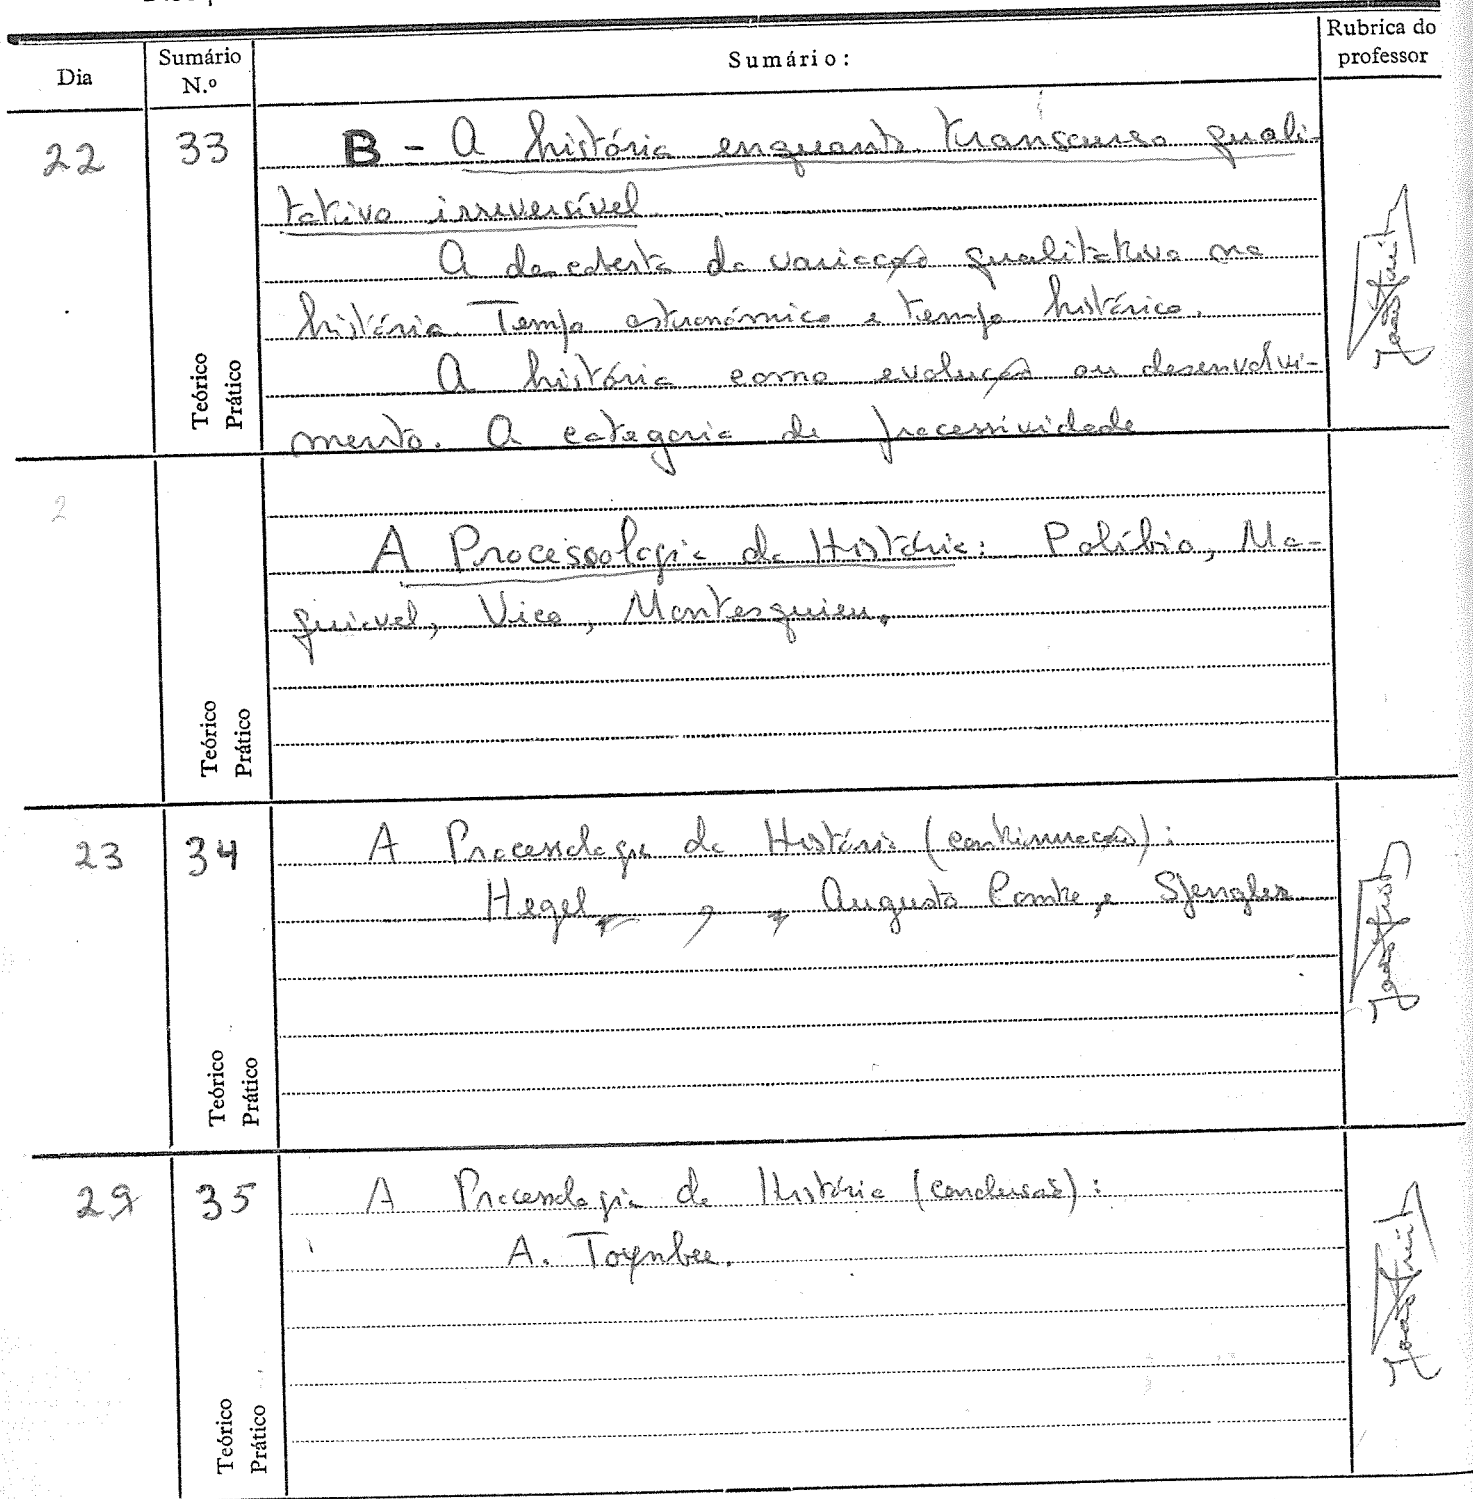 Dia
Sumário N.º
Sumário:
Rubrica do professor
22
33
B - A história enquanto transcurso quali-
tativo irreversível
A descoberta da variação qualitativa na
história. Tempo astronómico e tempo histórico.
A história como evolução ou desenvolvi-
mento. A categoria de processividade
Teórico
Prático
2
A Processologia da História: Políbio, Ma-
quiavel, Vico, Montesquieu.
Teórico
Prático
23
34
A Processologia da História (continuação):
Hegel, , Augusto Comte, e Spengler
Teórico
Prático
29
35
A Processologia da História (conclusão):
A. Toynbee.
Teórico
Prático